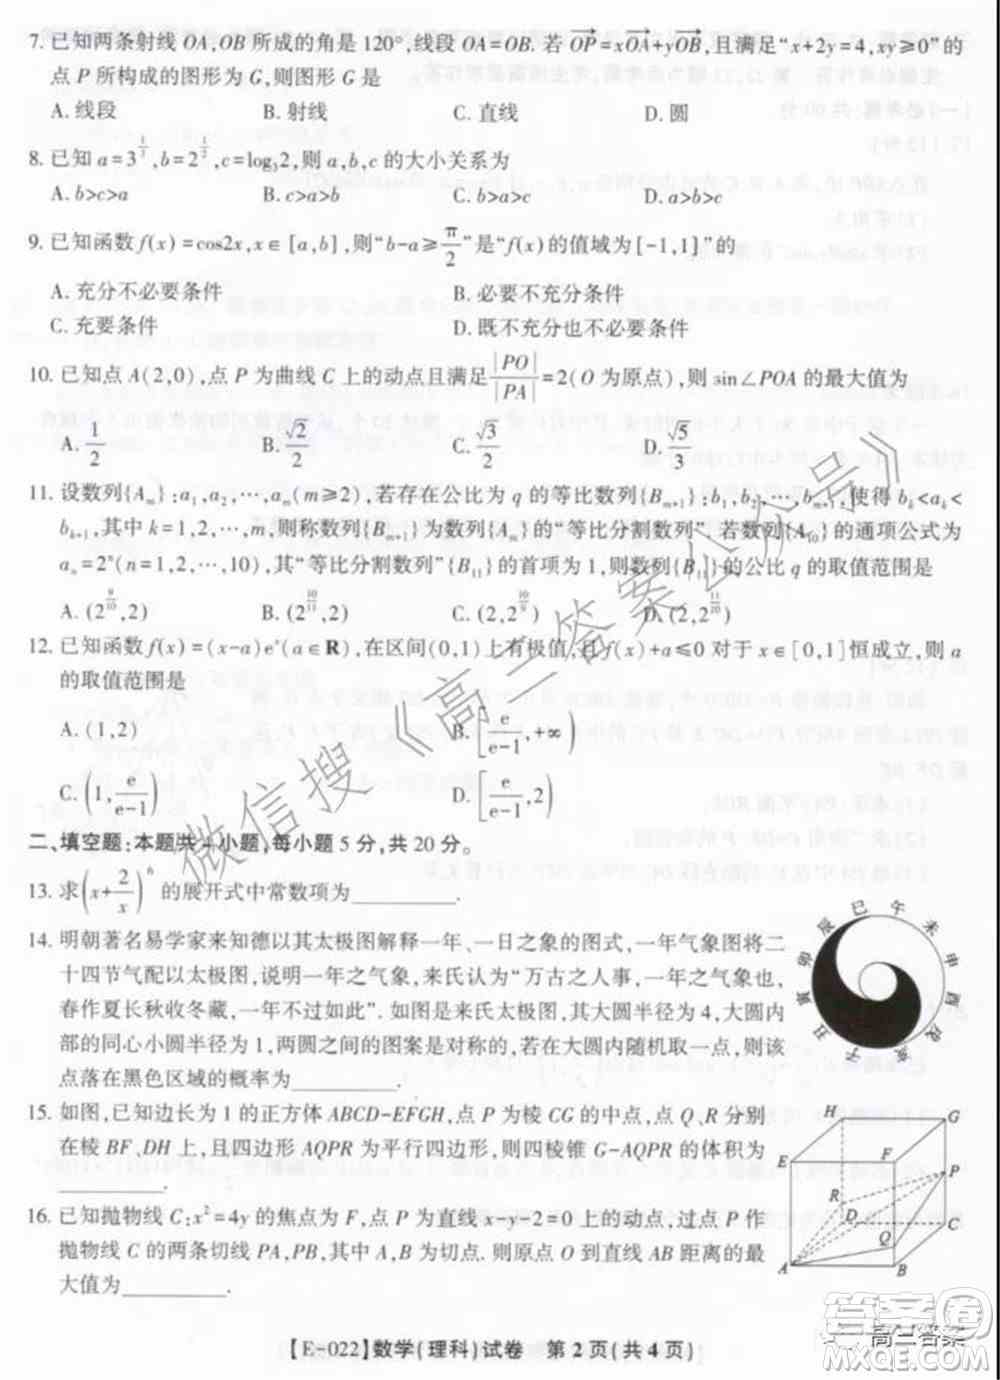 7. 已知两条射线 OA,OB 所成的角是 120°,线段 OA=OB. 若 \overrightarrow{OP}=x\overrightarrow{OA}+y\overrightarrow{OB},且满足“x+2y=4,xy≥0”的
点 P 所构成的图形为 G,则图形 G 是
A. 线段 B. 射线 C. 直线 D. 圆
8. 已知 a=3^{\frac{1}{3}},b=2^{\frac{1}{2}},c=log_3 2,则 a,b,c 的大小关系为
A. b>c>a B. c>a>b C. b>a>c D. a>b>c
9. 已知函数 f(x)=cos2x,x∈[a,b],则“b-a≥\frac{π}{2}”是“f(x)的值域为[-1,1]”的
A. 充分不必要条件 B. 必要不充分条件
C. 充要条件 D. 既不充分也不必要条件
10. 已知点 A(2,0),点 P 为曲线 C 上的动点且满足\frac{|PO|}{|PA|}=2(O 为原点),则 sin∠POA 的最大值为
A. \frac{1}{2} B. \frac{\sqrt{2}}{2} C. \frac{\sqrt{3}}{2} D. \frac{\sqrt{5}}{3}
11. 设数列{A_m}:a_1,a_2,⋯,a_m(m≥2),若存在公比为 q 的等比数列{B_{m+1}}:b_1,b_2,⋯,b_{m+1},使得 b_k<a_k<
b_{k+1},其中 k=1,2,⋯,m,则称数列{B_{m+1}}为数列{A_m}的“等比分割数列”. 若数列{A_{10}}的通项公式为
a_n=2^n(n=1,2,⋯,10),其“等比分割数列”{B_{11}}的首项为 1,则数列{B_{11}}的公比 q 的取值范围是
A. (2^{\frac{9}{10}},2) B. (2^{\frac{10}{11}},2) C. (2,2^{\frac{10}{9}}) D. (2,2^{\frac{11}{10}})
12. 已知函数 f(x)=(x-a)e^x(a∈R),在区间(0,1)上有极值,且 f(x)+a≤0 对于 x∈[0,1]恒成立,则 a
的取值范围是
A. (1,2) B. [\frac{e}{e-1},+∞)
C. (1,\frac{e}{e-1}) D. [\frac{e}{e-1},2)
二、填空题:本题共 4 小题,每小题 5 分,共 20 分。
13. 求(x+\frac{2}{x})^6 的展开式中常数项为________.
14. 明朝著名易学家来知德以其太极图解释一年、一日之象的图式,一年气象图将二
十四节气配以太极图,说明一年之气象,来氏认为“万古之人事,一年之气象也,
春作夏长秋收冬藏,一年不过如此”. 如图是来氏太极图,大圆半径为 4,大圆内部
的同心小圆半径为 1,两圆之间的图案是对称的,若在大圆内随机取一点,则该
点落在黑色区域的概率为________.
巳 午 未 申 酉 戌 亥 子 丑 寅 卯 辰
15. 如图,已知边长为 1 的正方体 ABCD-EFGH,点 P 为棱 CG 的中点,点 Q、R 分别
在棱 BF、DH 上,且四边形 AQPR 为平行四边形,则四棱锥 G-AQPR 的体积为
________.
H G
E F
P
R
D C
Q
A B
16. 已知抛物线 C:x²=4y 的焦点为 F,点 P 为直线 x-y-2=0 上的动点,过点 P 作
抛物线 C 的两条切线 PA,PB,其中 A,B 为切点. 则原点 O 到直线 AB 距离的最
大值为________.
【E-022】数学(理科)试卷 第 2 页(共 4 页)
微信搜《高三答案公众号》
答案圈
高三答案